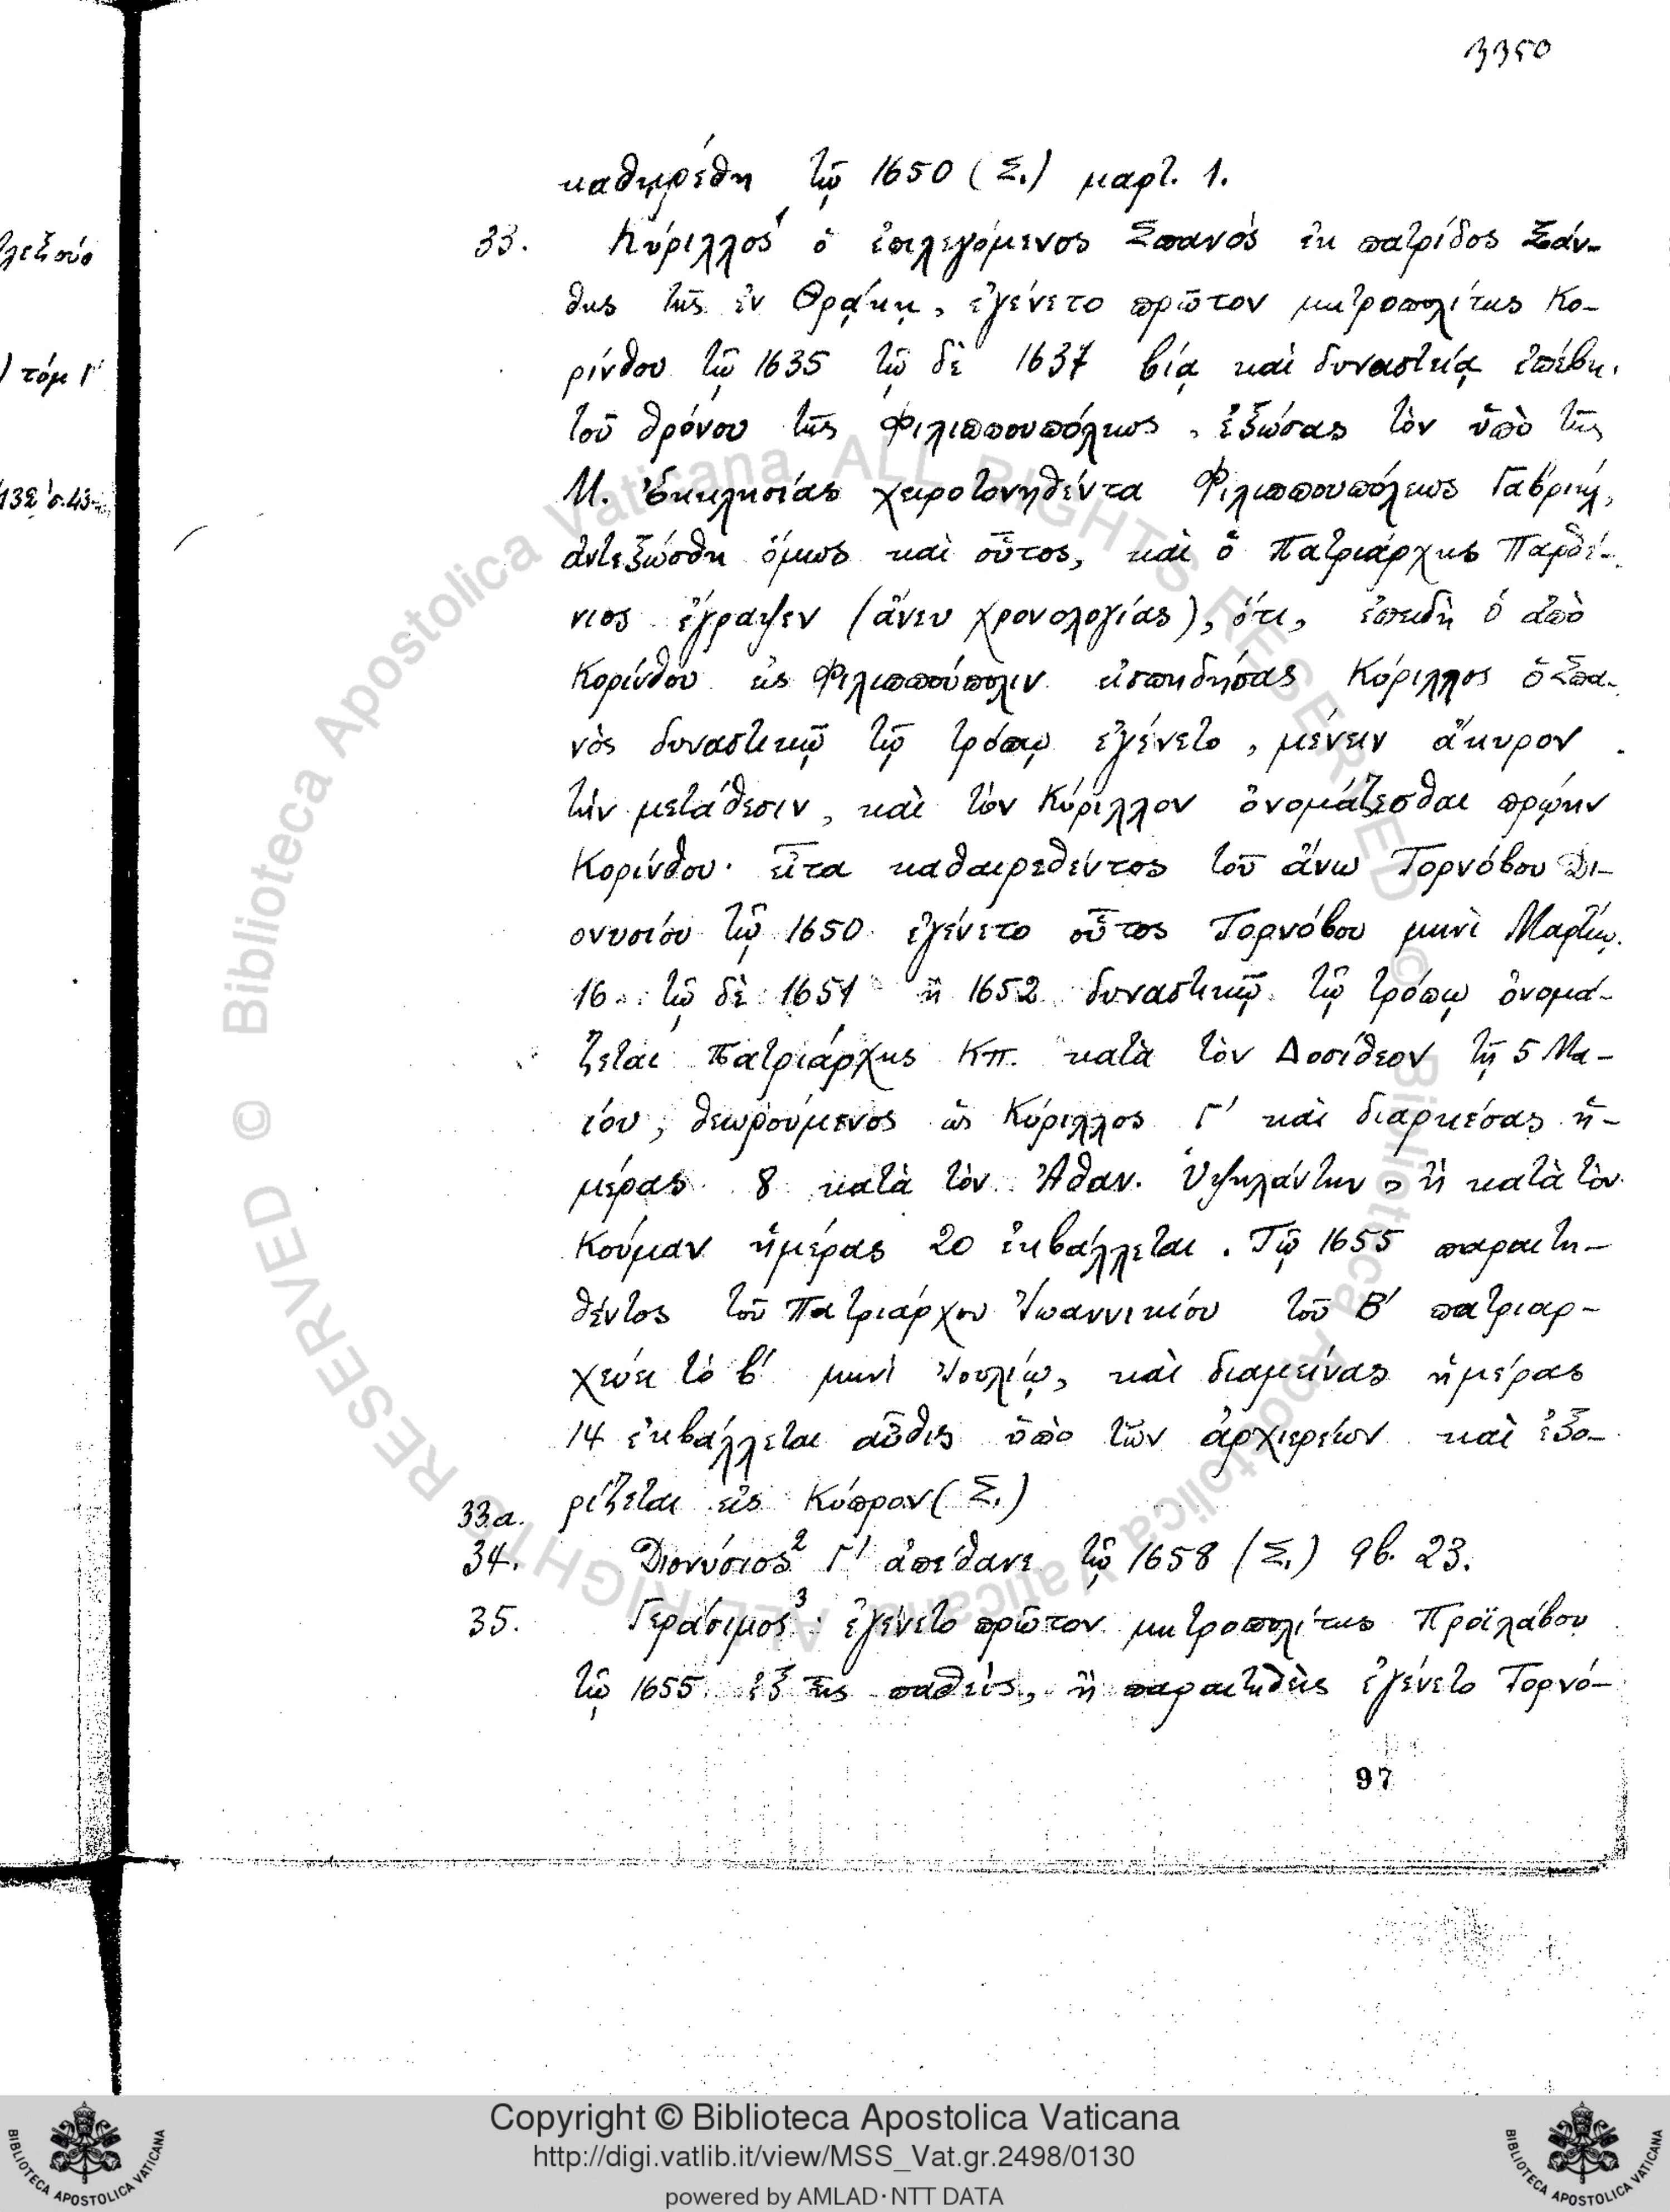 3350
καθῃρέθη τῷ 1650 (Σ.) μαρτ. 1.
33. Κύριλλος¹ ὁ ἐπιλεγόμενος Σπανὸς ἐκ πατρίδος Ξάν-
θης τῆς ἐν Θρᾴκῃ, ἐγένετο πρῶτον μητροπολίτης Κο-
ρίνθου τῷ 1635 τῷ δὲ 1637 βίᾳ καὶ δυναστείᾳ ἐπέβη
τοῦ θρόνου τῆς Φιλιππουπόλεως, ἐξώσας τὸν ὑπὸ τῆς
Μ. Ἐκκλησίας χειροτονηθέντα Φιλιππουπόλεως Γαβριήλ,
ἀντεξώσθη ὅμως καὶ οὗτος, καὶ ὁ Πατριάρχης Παρθέ-
νιος ἔγραψεν (ἄνευ χρονολογίας), ὅτι, ἐπειδὴ ὁ ἀπὸ
Κορίνθου εἰς Φιλιππούπολιν εἰσπηδήσας Κύριλλος ὁ Σπα-
νὸς δυναστικῷ τῷ τρόπῳ ἐγένετο, μένειν ἄκυρον
τὴν μετάθεσιν, καὶ τὸν Κύριλλον ὀνομάζεσθαι πρῴην
Κορίνθου· εἶτα καθαιρεθέντος τοῦ ἄνω Τορνόβου Δι-
ονυσίου τῷ 1650 ἐγένετο οὗτος Τορνόβου μηνὶ Μαρτίῳ
16. τῷ δὲ 1651 ἢ 1652 δυναστικῷ τῷ τρόπῳ ὀνομά-
ζεται Πατριάρχης Κπ. κατὰ τὸν Δοσίθεον τῇ 5 Μα-
ΐου, θεωρούμενος ὡς Κύριλλος Γ' καὶ διαρκέσας ἡ-
μέρας 8 κατὰ τὸν Ἀθαν. Ὑψηλάντην, ἢ κατὰ τὸν
Κούμαν ἡμέρας 20 ἐκβάλλεται. Τῷ 1655 παραιτη-
θέντος τοῦ Πατριάρχου Ἰωαννικίου τοῦ Β' πατριαρ-
χεύει τὸ β' μηνὶ Ἰουλίῳ, καὶ διαμείνας ἡμέρας
14 ἐκβάλλεται αὖθις ὑπὸ τῶν ἀρχιερέων καὶ ἐξο-
ρίζεται εἰς Κύπρον (Σ.)
33α.
34. Διονύσιος² Γ' ἀπέθανε τῷ 1658 (Σ.) 9β. 23.
35. Γεράσιμος³: ἐγένετο πρῶτον μητροπολίτης Προϊλάβου
τῷ 1655. ἐξ ἧς παυθεὶς, ἢ παραιτηθεὶς ἐγένετο Τορνό-
97
τόμ Γ'
Copyright © Biblioteca Apostolica Vaticana
http://digi.vatlib.it/view/MSS_Vat.gr.2498/0130
powered by AMLAD·NTT DATA
BIBLIOTECA APOSTOLICA VATICANA
BIBLIOTECA APOSTOLICA VATICANA
© Biblioteca Apostolica Vaticana ALL RIGHTS RESERVED
© Biblioteca Apostolica Vaticana ALL RIGHTS RESERVED